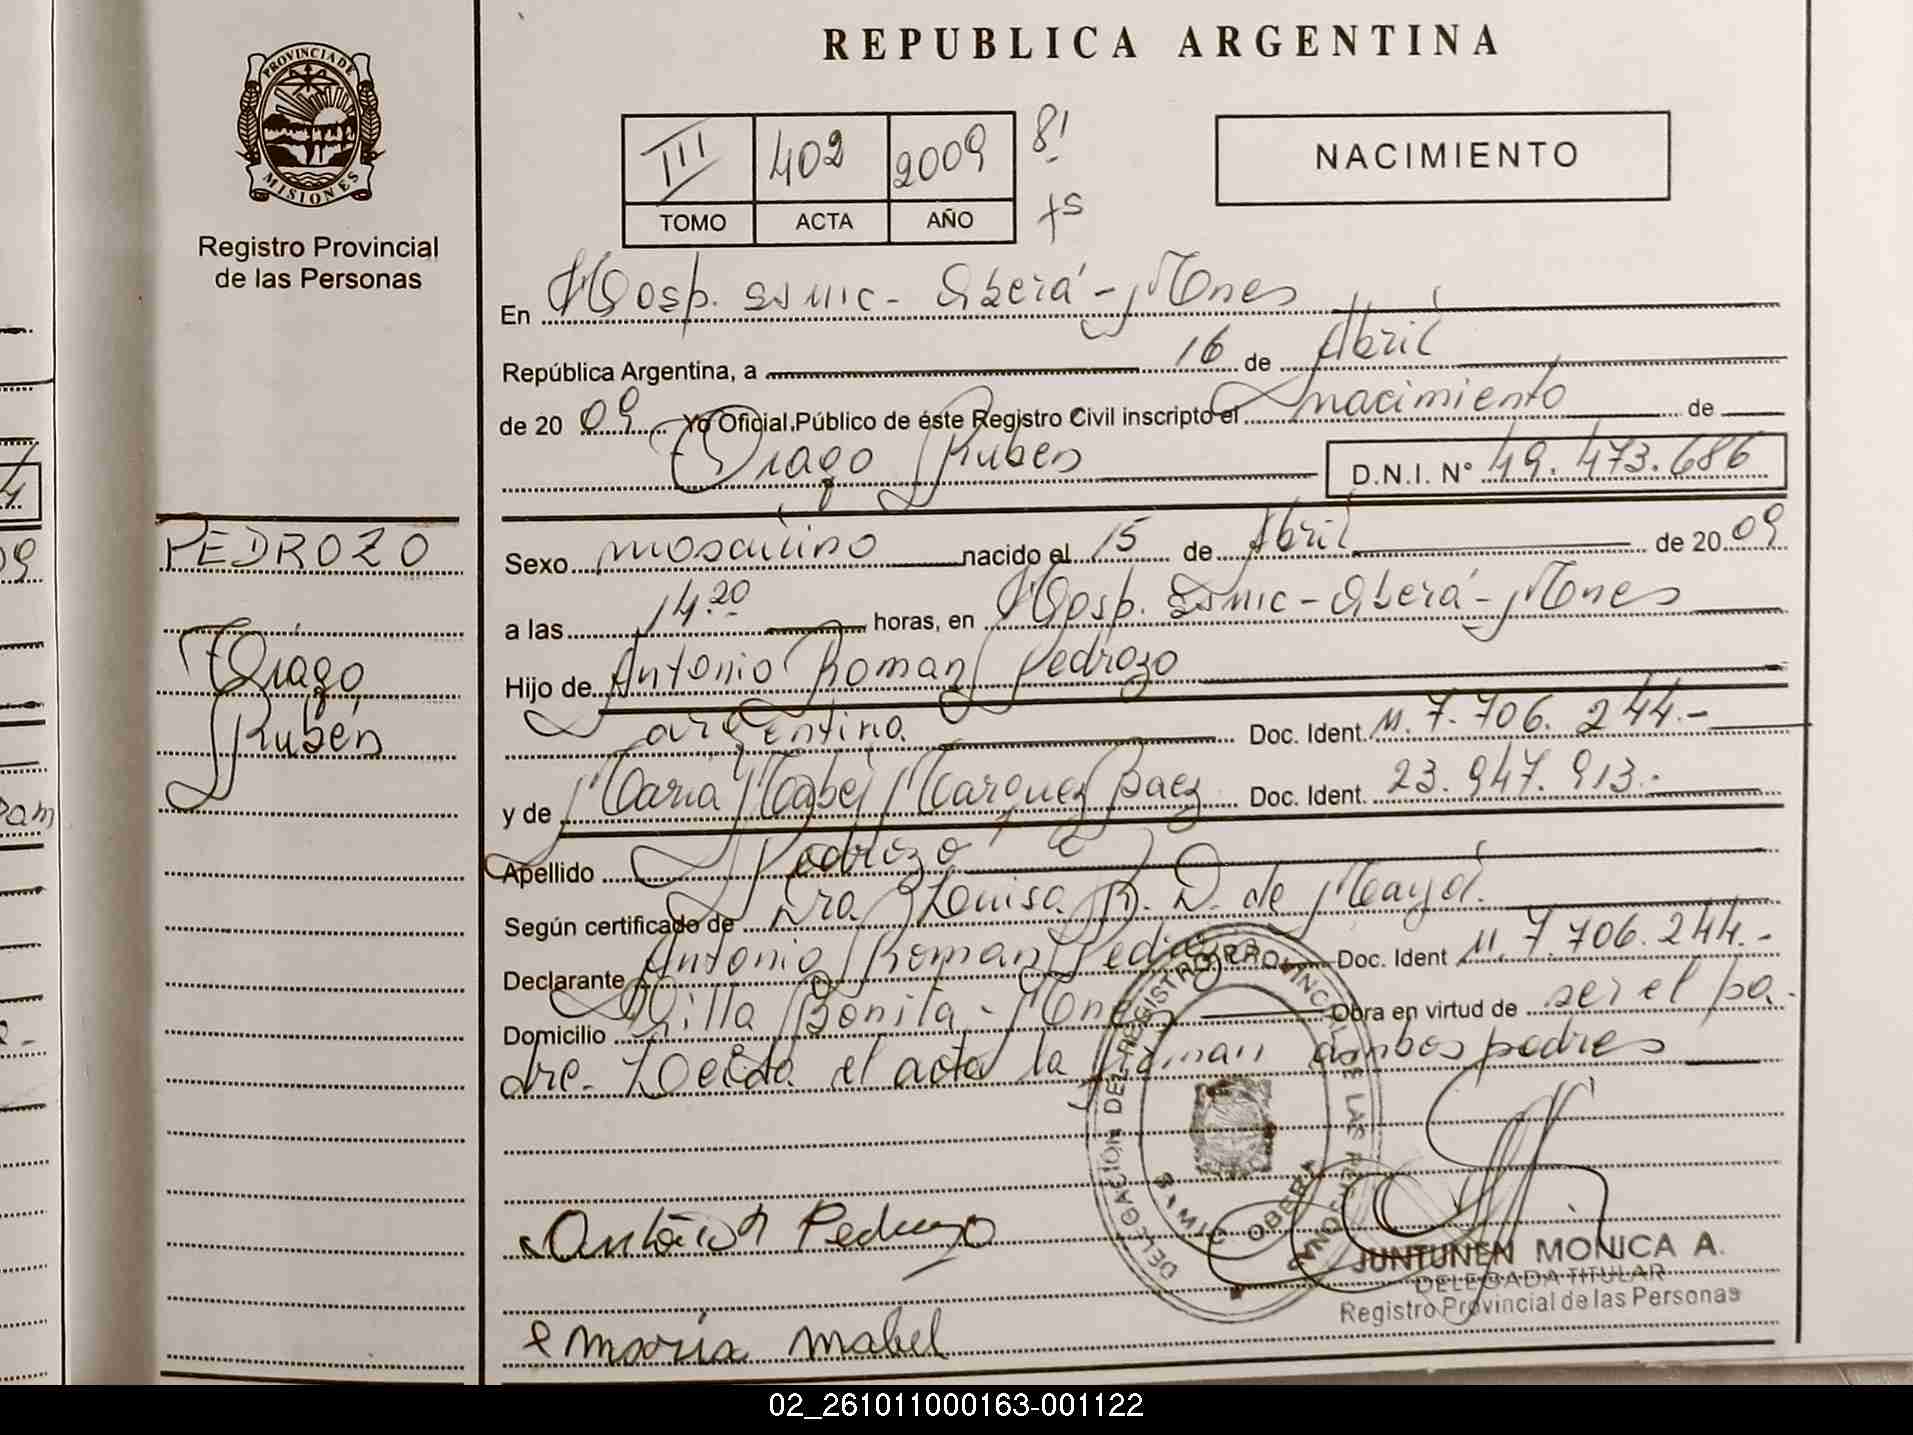 PROVINCIA DE
MISIONES
Registro Provincial
de las Personas
PEDROZO
Tiago
Rubén
REPUBLICA ARGENTINA
III 402 2009
TOMO ACTA AÑO
NACIMIENTO
En Hosp. Samic - Oberá - Mnes
República Argentina, a 16 de Abril
de 2009 Yo Oficial Público de éste Registro Civil inscripto el nacimiento de
Tiago Ruben D.N.I. N° 49.473.686
Sexo masculino nacido el 15 de Abril de 2009
a las 14.20 horas, en Hosp. Samic - Oberá - Mnes
Hijo de Antonio Roman Pedrozo
argentino. Doc. Ident. M. 7.706.244.-
y de Maria Mabel Marquez Baez Doc. Ident. 23.947.913.-
Apellido Pedrozo
Según certificado de Dra. Louisa R. D. de Mayol.
Declarante Antonio Roman Pedrozo Doc. Ident M. 7.706.244.-
Domicilio Villa Bonita - Mnes Obra en virtud de ser el pa-
dre. Leida el acta la firman ambos padres
DELEGACIÓN DEL REGISTRO PROVINCIAL DE LAS PERSONAS
OBERA
Pedrozo
JUNTUNEN MONICA A.
DELEGADA TITULAR
Registro Provincial de las Personas
maria mabel
02_261011000163-001122